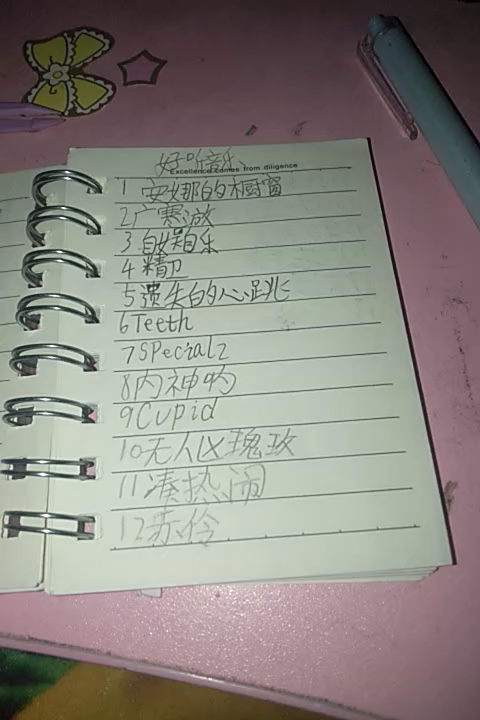 好听音乐、
Excellence comes from diligence
1 安娜的橱窗
2 广寒激
3 自娱自乐
4 精卫
5 遗失的心跳
6 Teeth
7 SPecialz
8 内神
9 Cupid
10 无人区玫瑰
11 凑热闹
12 赤伶